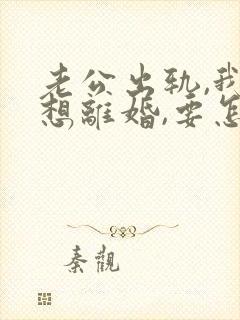 老公出轨,我
想離婚,要怎
秦觀